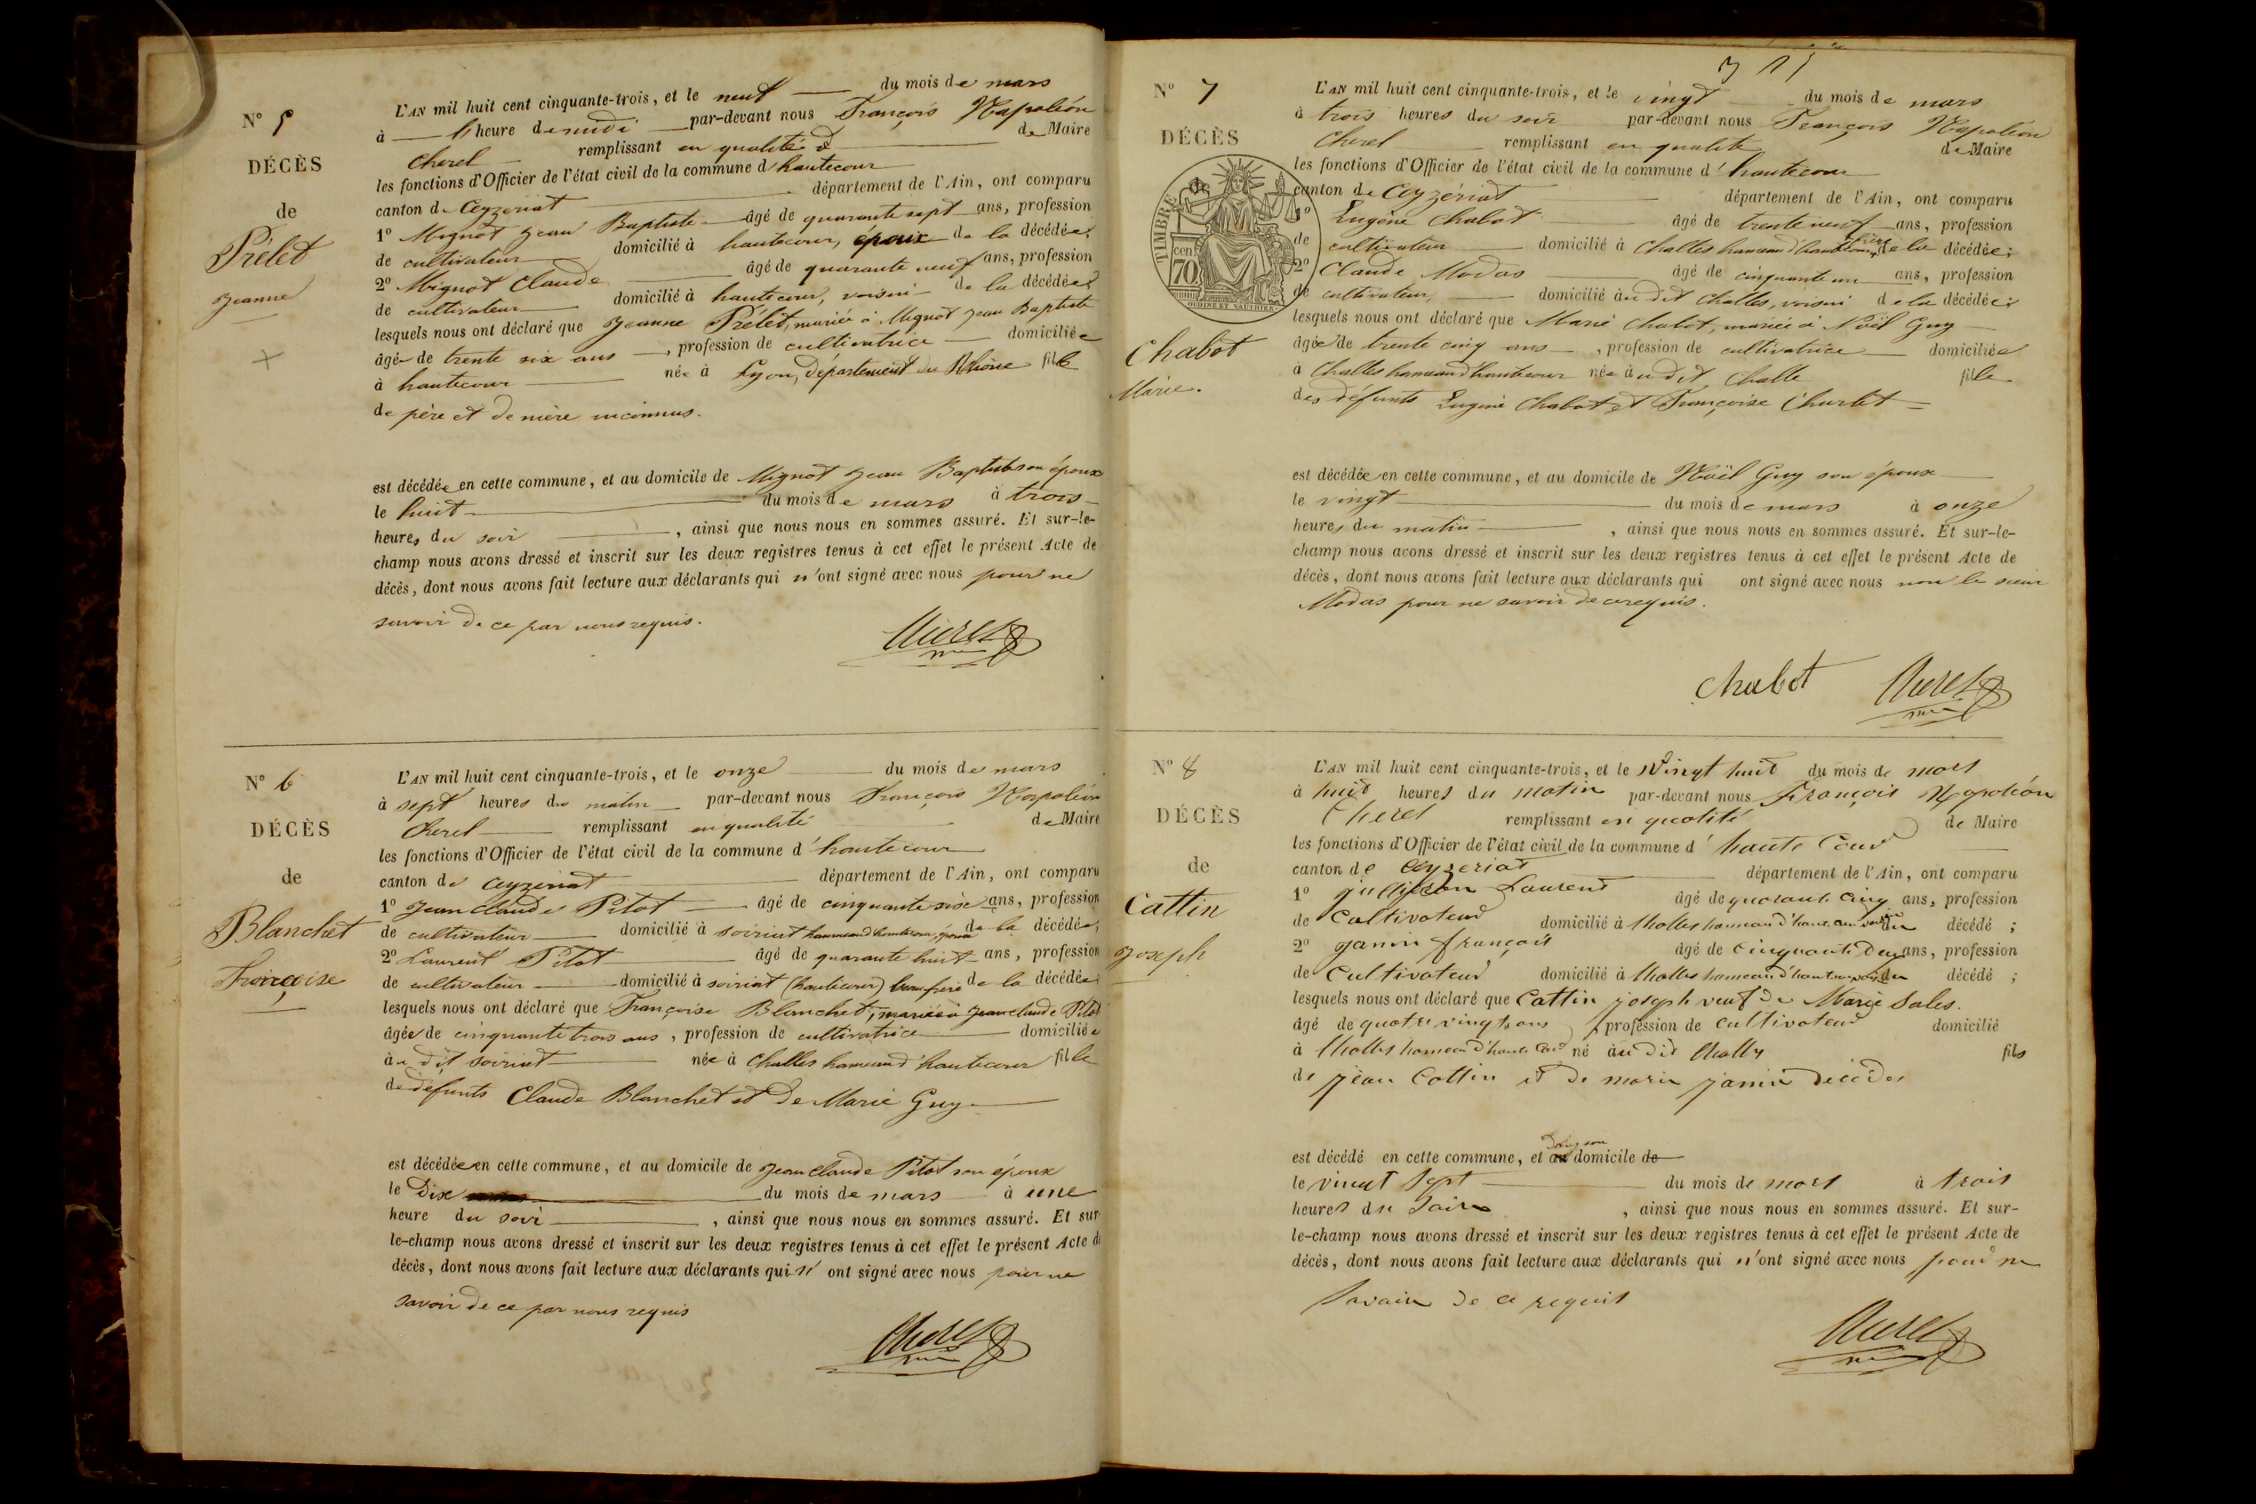 N° 5
DÉCÈS
de
Prélet
Jeanne
L'AN mil huit cent cinquante-trois, et le neuf du mois de mars
à l'heure de midi par-devant nous François Napoléon
Cherel remplissant en qualité d de Maire
les fonctions d'Officier de l'état civil de la commune d'hautecour
canton de Ceyzeriat département de l'Ain, ont comparu
1° Mignot Jean Baptiste âgé de quarante sept ans, profession
de cultivateur domicilié à hautecour, époux de la décédée;
2° Mignot Claude âgé de quarante neuf ans, profession
de cultivateur domicilié à hautecour, voisin de la décédée;
lesquels nous ont déclaré que Jeanne Prélet, mariée à Mignot Jean Baptiste
âgée de trente six ans, profession de cultivatrice domiciliée
à hautecour née à Lyon, département du Rhône fille
de père et de mère inconnus.
est décédée en cette commune, et au domicile de Mignot Jean Baptiste son époux
le huit du mois de mars à trois
heures du soir, ainsi que nous nous en sommes assuré. Et sur-le-
champ nous avons dressé et inscrit sur les deux registres tenus à cet effet le présent Acte de
décès, dont nous avons fait lecture aux déclarants qui n'ont signé avec nous pour ne
savoir de ce par nous requis.
Cherel
N° 6
DÉCÈS
de
Blanchet
Françoise
L'AN mil huit cent cinquante-trois, et le onze du mois de mars
à sept heures du matin par-devant nous François Napoléon
Cherel remplissant en qualité de Maire
les fonctions d'Officier de l'état civil de la commune d'hautecour
canton de Ceyzeriat département de l'Ain, ont comparu
1° Jean Claude Pitot âgé de cinquante six ans, profession
de cultivateur domicilié à soiriat hameau d'hautecour, époux de la décédée;
2° Laurent Pitot âgé de quarante huit ans, profession
de cultivateur domicilié à soiriat (hautecour) beau frère de la décédée;
lesquels nous ont déclaré que Françoise Blanchet, mariée à Jean Claude Pitot
âgée de cinquante trois ans, profession de cultivatrice domiciliée
au dit soiriat née à Challes hameau d'hautecour fille
de défunts Claude Blanchet et de Marie Guy
est décédée en cette commune, et au domicile de Jean Claude Pitot son époux
le Dix du mois de mars à une
heure du soir, ainsi que nous nous en sommes assuré. Et sur-
le-champ nous avons dressé et inscrit sur les deux registres tenus à cet effet le présent Acte de
décès, dont nous avons fait lecture aux déclarants qui n'ont signé avec nous pour ne
savoir de ce par nous requis
Cherel
N° 7
DÉCÈS
de
TIMBRE
70 cen
Chabot
Marie.
L'AN mil huit cent cinquante-trois, et le vingt du mois de mars
à trois heures du soir par-devant nous François Napoléon
Cherel remplissant en qualité de Maire
les fonctions d'Officier de l'état civil de la commune d'hautecour
canton de Ceyzériat département de l'Ain, ont comparu
1° Eugène Chabot âgé de trente neuf ans, profession
de cultivateur domicilié à Challes hameau d'hautecour, frère de la décédée;
2° Claude Modas âgé de cinquante un ans, profession
de cultivateur, domicilié au dit Challes, voisin de la décédée;
lesquels nous ont déclaré que Marie Chabot, mariée à Noël Guy
âgée de trente cinq ans, profession de cultivatrice domiciliée
à Challes hameau d'hautecour née au dit Challe fille
des défunts Eugène Chabot et Françoise Churlet
est décédée en cette commune, et au domicile de Noël Guy son époux
le vingt du mois de mars à onze
heures du matin, ainsi que nous nous en sommes assuré. Et sur-le-
champ nous avons dressé et inscrit sur les deux registres tenus à cet effet le présent Acte de
décès, dont nous avons fait lecture aux déclarants qui ont signé avec nous non le sieur
Modas pour ne savoir de ce requis.
Chabot Cherel
N° 8
DÉCÈS
de
Cattin
Joseph
L'AN mil huit cent cinquante-trois, et le Vingt huit du mois de mars
à huit heures du matin par-devant nous François Napoléon
Cherel remplissant en qualité de Maire
les fonctions d'Officier de l'état civil de la commune d'haute Cour
canton de Ceyzeriat département de l'Ain, ont comparu
1° Laurent âgé de quarante cinq ans, profession
de Cultivateur domicilié à Challes hameau d'hautecour voisin du décédé;
2° Janin françois âgé de Cinquante Deux ans, profession
de Cultivateur domicilié à Challes hameau d'hautecour voisin du décédé;
lesquels nous ont déclaré que Cattin Joseph veuf de Marie Sales.
âgé de quatre vingts ans, profession de Cultivateur domicilié
à Challes hameau d'haute Cour né au dit Challes fils
de jean Cattin et de marie janin décédés
est décédé en cette commune, et dans son domicile
le vingt Sept du mois de mars à trois
heures du Soir, ainsi que nous nous en sommes assuré. Et sur-
le-champ nous avons dressé et inscrit sur les deux registres tenus à cet effet le présent Acte de
décès, dont nous avons fait lecture aux déclarants qui n'ont signé avec nous pour ne
Savoir de ce requis
Cherel